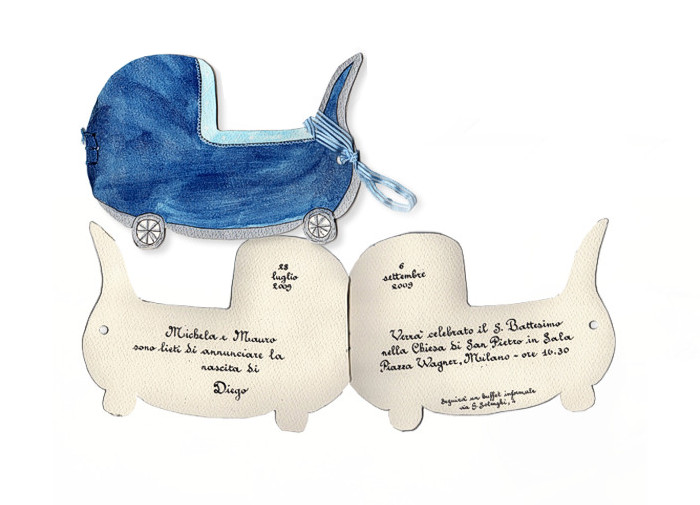 28
luglio
2009
Michela e Mauro
sono lieti di annunciare la
nascita di
Diego
6
settembre
2009
Verrà celebrato il S. Battesimo
nella Chiesa di San Pietro in Sala
Piazza Wagner, Milano - ore 10.30
Seguirà un buffet informale
via G.